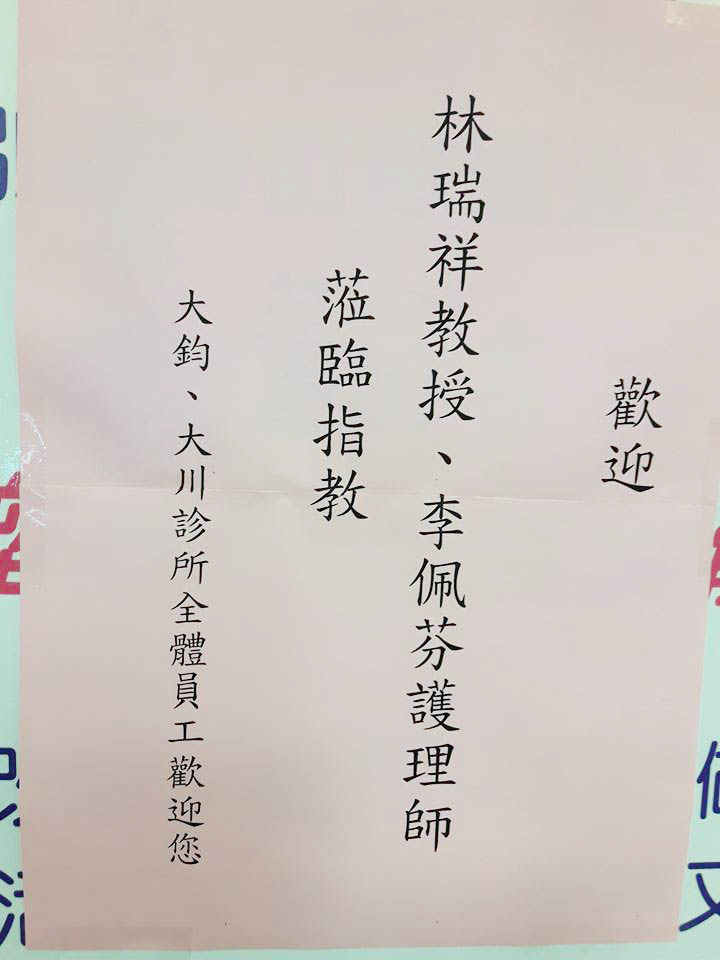 歡迎
林瑞祥教授、李佩芬護理師
蒞臨指教
大鈞、大川診所全體員工歡迎您